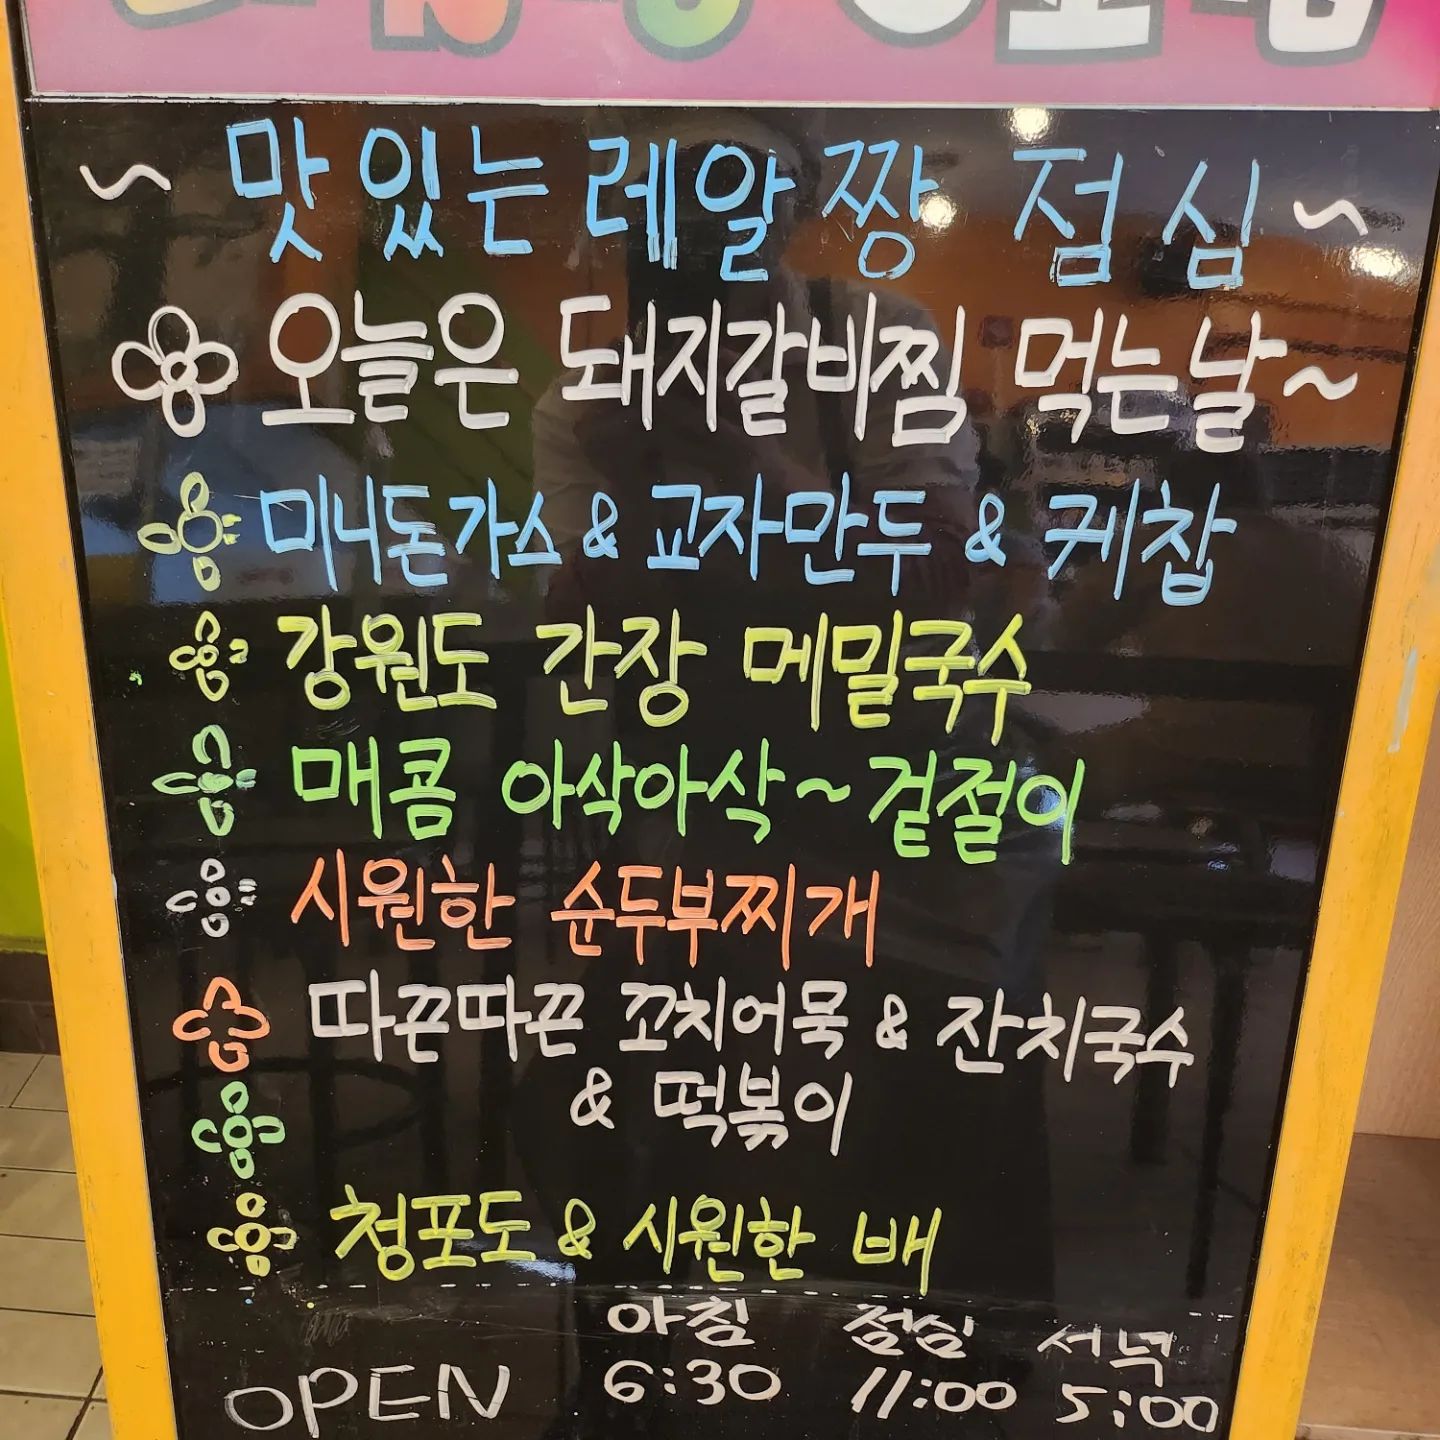 ~ 맛있는 레알짱 점심 ~
오늘은 돼지갈비찜 먹는날~
미니돈가스 & 교자만두 & 케찹
강원도 간장 메밀국수
매콤 아삭아삭~ 겉절이
시원한 순두부찌개
따끈따끈 꼬치어묵 & 잔치국수
& 떡볶이
청포도 & 시원한 배
아침 점심 저녁
OPEN 6:30 11:00 5:00